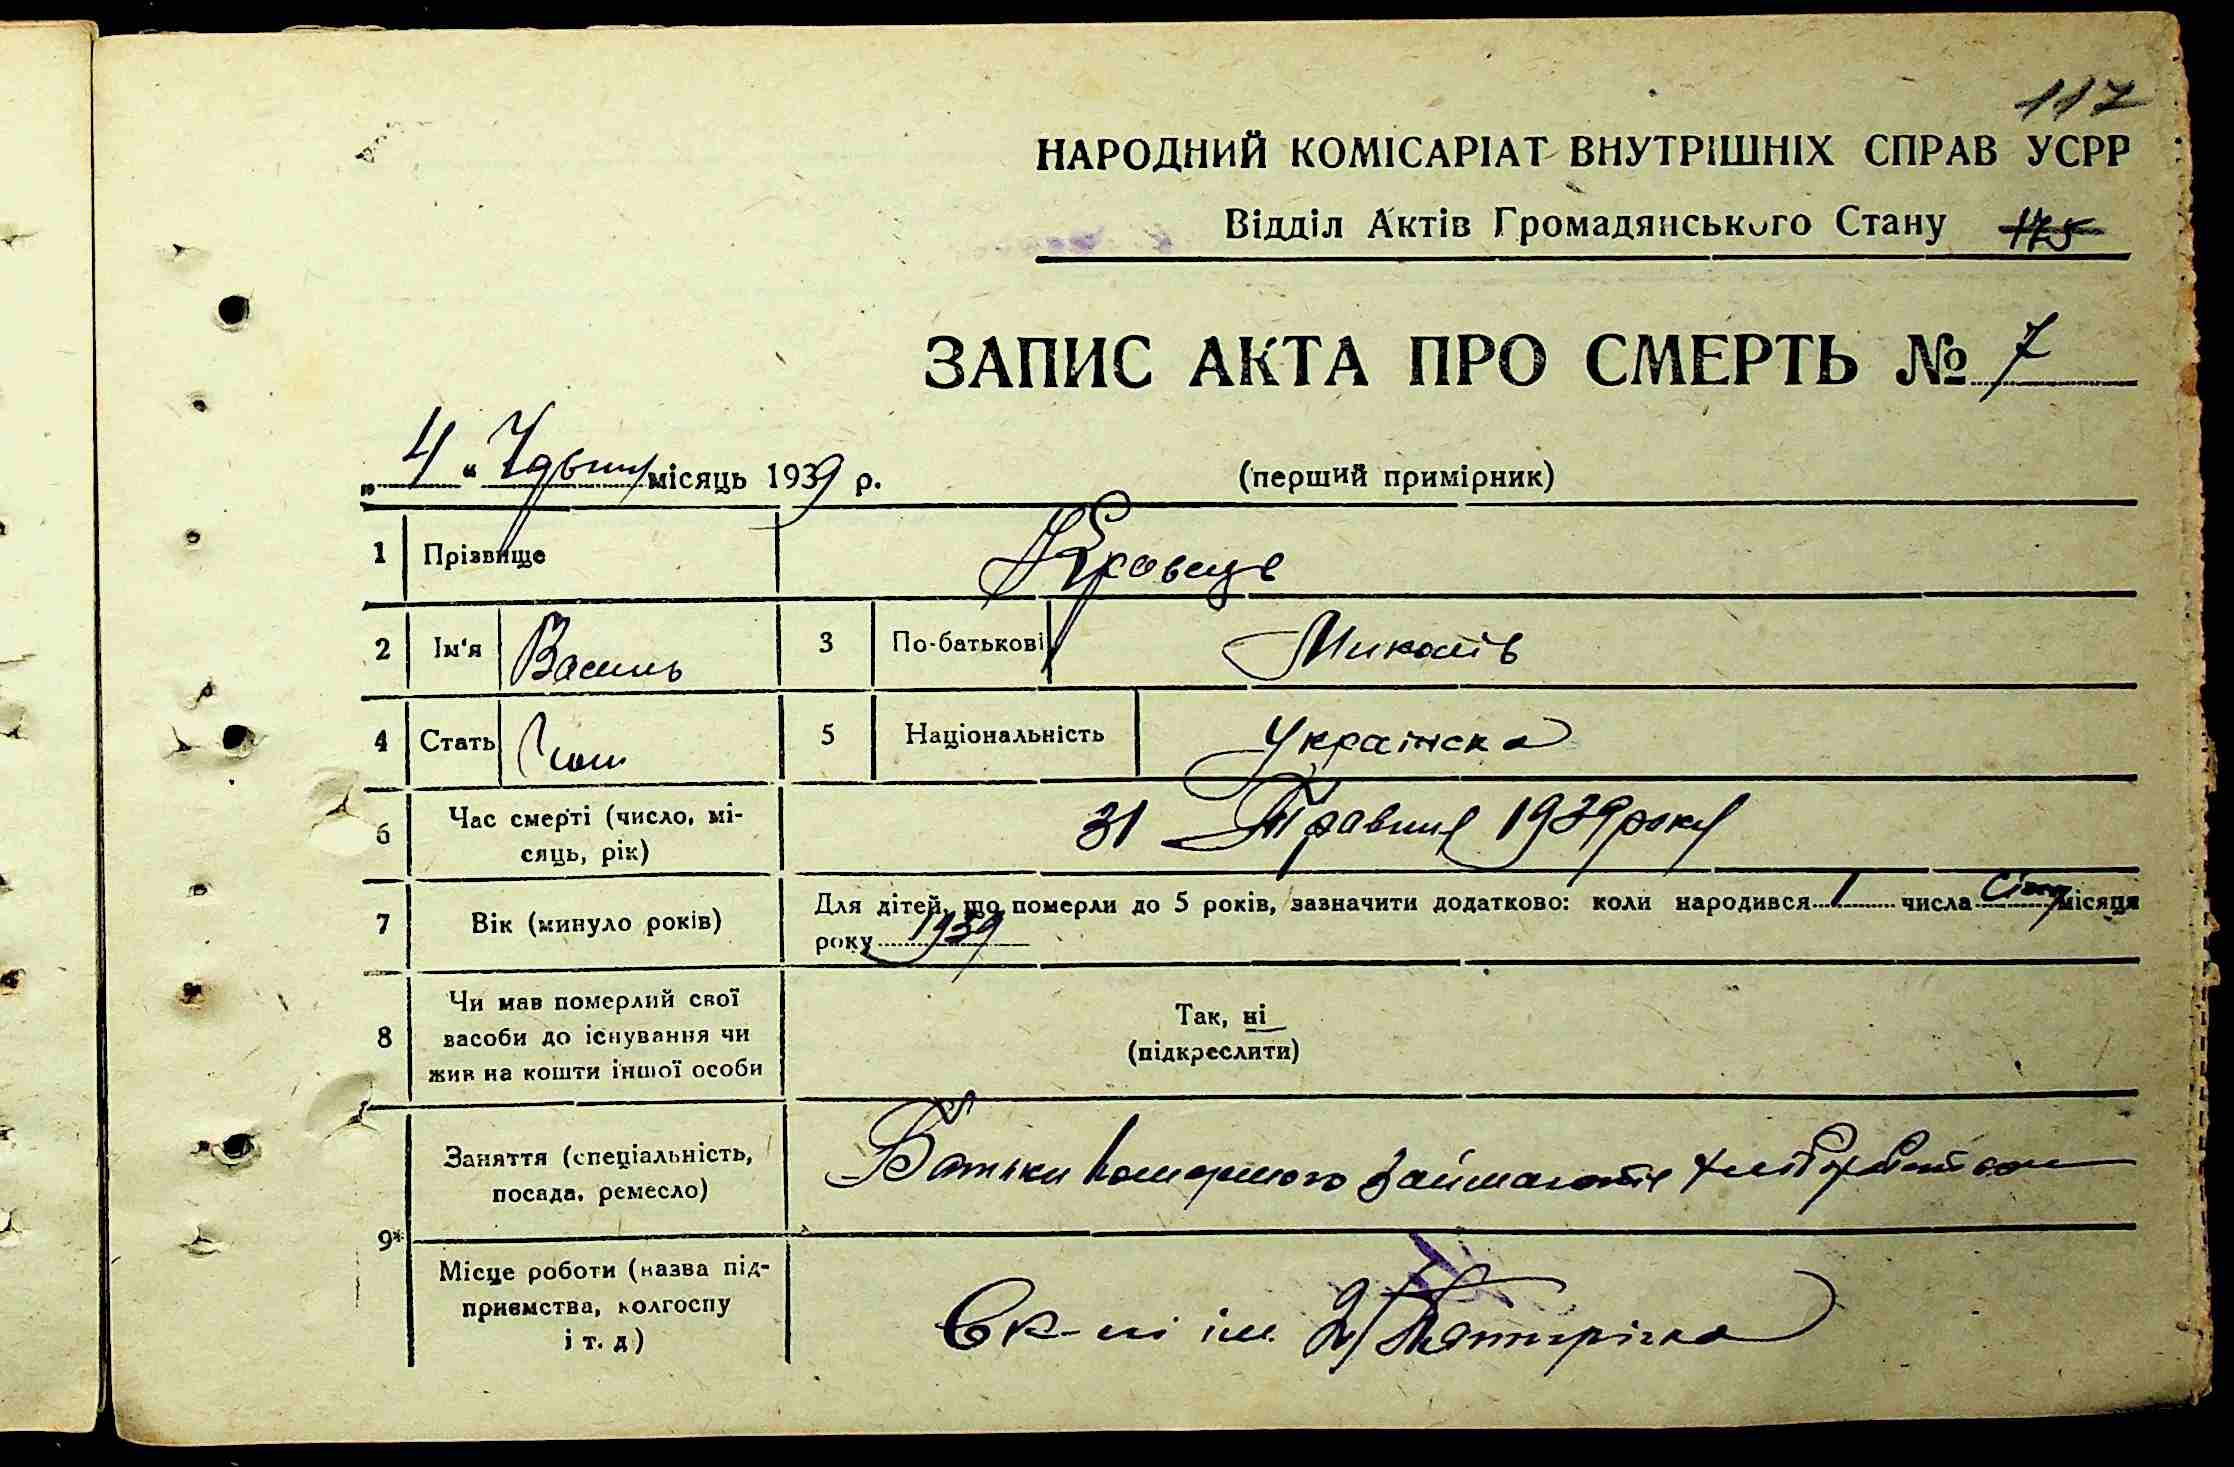 117
НАРОДНИЙ КОМІСАРІАТ ВНУТРІШНІХ СПРАВ УСРР
Відділ Актів Громадянського Стану 175
ЗАПИС АКТА ПРО СМЕРТЬ № 7
„ 4 “ місяць 1939 р. (перший примірник)
1 Прізвище Кравець
2 Ім'я Василь 3 По-батькові Миколів
4 Стать Чол 5 Національність Українска
6 Час смерті (число, мі-
сяць, рік) 31 Травня 1939 року
7 Вік (минуло років) Для дітей, що померли до 5 років, зазначити додатково: коли народився 1 числа Січня місяця
року 1939
8 Чи мав померлий свої
засоби до існування чи
жив на кошти іншої особи
Так, ні
(підкреслити)
9*
Заняття (спеціальність,
посада, ремесло) Батьки померлого займаються
Місце роботи (назва під-
приємства, колгоспу
і т. д) ім. 2 Пятирічка